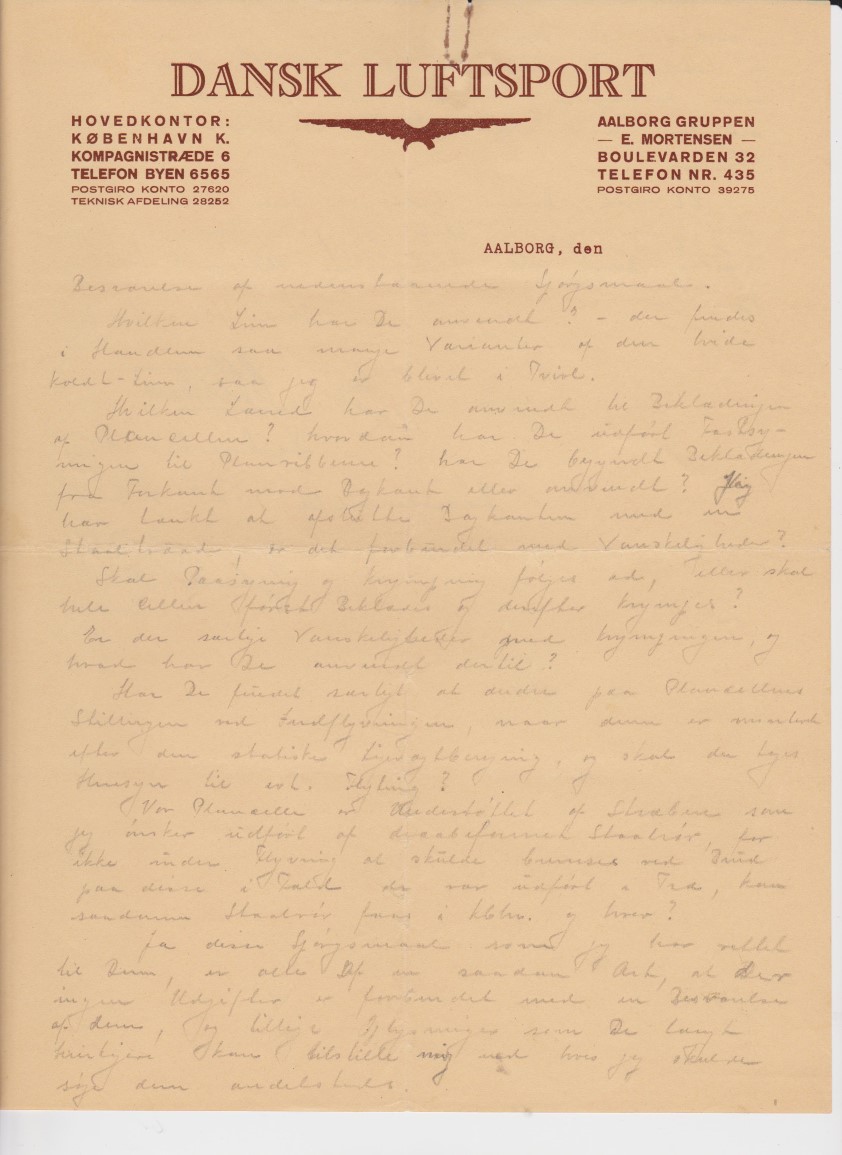 DANSK LUFTSPORT
HOVEDKONTOR:
KØBENHAVN K.
KOMPAGNISTRÆDE 6
TELEFON BYEN 6565
POSTGIRO KONTO 27620
TEKNISK AFDELING 28252
AALBORG GRUPPEN
— E. MORTENSEN —
BOULEVARDEN 32
TELEFON NR. 435
POSTGIRO KONTO 39275
AALBORG, den
Besvarelse af nedenstaaende Spörgsmaal.
Hvilken Lim har De anvendt? – der findes
i Handlen saa mange Varianter af den hvide
koldt-Lim, saa jeg er blevet i Tvivl.
Hvilken Lærred har De anvendt til Beklædningen
af Plancellen? hvordan har De udfört Fastsy-
ningen til Planribbene? har De begyndt Beklædningen
fra Forkant mod Bagkant eller omvendt? Jeg
har tænkt at afstette Bagkanten med en
Staaltraad, er det forbundet med Vanskeligheder?
Skal Paasyning og krympning fölges ad, eller skal
hele Cellen först Beklædes og derefter krympes?
Er der særlige Vanskeligheder med krympningen, og
hvad har De anvendt dertil?
Har De fundet særligt at ændre paa Plancellens
Stillingen ved Indflyvningen, naar denne er monteret
efter den statiske, og skal der tages
Hensyn til evt.?
Vor Plancelle er Understöttet af Stræbere som
jeg önsker udfört af draabeformet Staalrör, for
ikke under Flyvning at skulde ved Brud
paa disse i Fald de var udfört i Træ, kan
saadanne Staalrör faas i Kbhv. og hvor?
Ja disse Spörgsmaal som jeg har rettet
til Dem, er alle Af en saadan Art, at Der
ingen Udgifter er forbundet med en Besvarelse
af dem, og tillige Oplysninger som De langt
hurtigere kan tilstille mig end hvis jeg skulde
söge dem andetsteds.